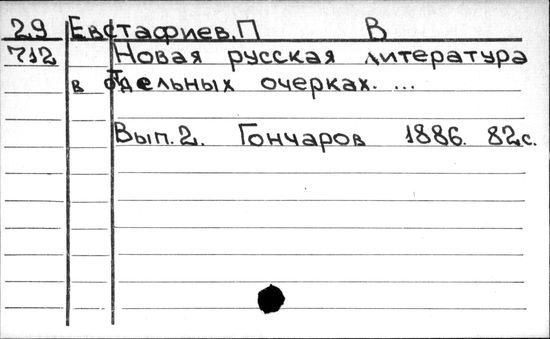 29 Евстафиев. П В
712 Новая русская литература
в отдельных очерках. ...
Вып. 2. Гончаров 1886. 82с.